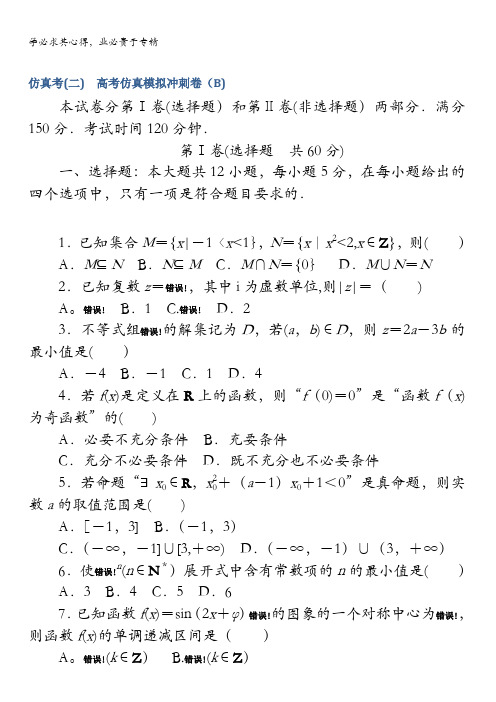 学必求其心得，业必贵于专精
仿真考(二)　高考仿真模拟冲刺卷（B)
本试卷分第Ⅰ卷(选择题）和第Ⅱ卷(非选择题）两部分．满分
150分．考试时间120分钟．
第Ⅰ卷(选择题　共60分)
一、选择题：本大题共12小题，每小题5分，在每小题给出的
四个选项中，只有一项是符合题目要求的．
1．已知集合M＝{x|－1〈x<1}，N＝{x｜x²<2,x∈Z}，则(　　)
A．M⊆N　B．N⊆M　C．M∩N＝{0}　D．M∪N＝N
2．已知复数z＝错误!，其中i为虚数单位,则|z|＝（　　)
A。错误!　B．1　C.错误!　D．2
3．不等式组错误!的解集记为D，若(a，b)∈D，则z＝2a－3b的
最小值是(　　）
A．－4　B．－1　C．1　D．4
4．若f(x)是定义在R上的函数，则“f（0)＝0”是“函数f（x)
为奇函数”的(　　)
A．必要不充分条件　B．充要条件
C．充分不必要条件　D．既不充分也不必要条件
5．若命题“∃x₀∈R，x₀²＋（a－1）x₀＋1＜0”是真命题，则实
数a的取值范围是(　　)
A．[－1，3]　B．（－1，3）
C．（－∞，－1]∪[3,＋∞)　D．（－∞，－1）∪（3，＋∞）
6．使错误!ⁿ(n∈N*）展开式中含有常数项的n的最小值是(　　)
A．3　B．4　C．5　D．6
7．已知函数f(x)＝sin（2x＋φ）错误!的图象的一个对称中心为错误!，
则函数f(x)的单调递减区间是（　　）
A。错误!(k∈Z）　B.错误!(k∈Z）